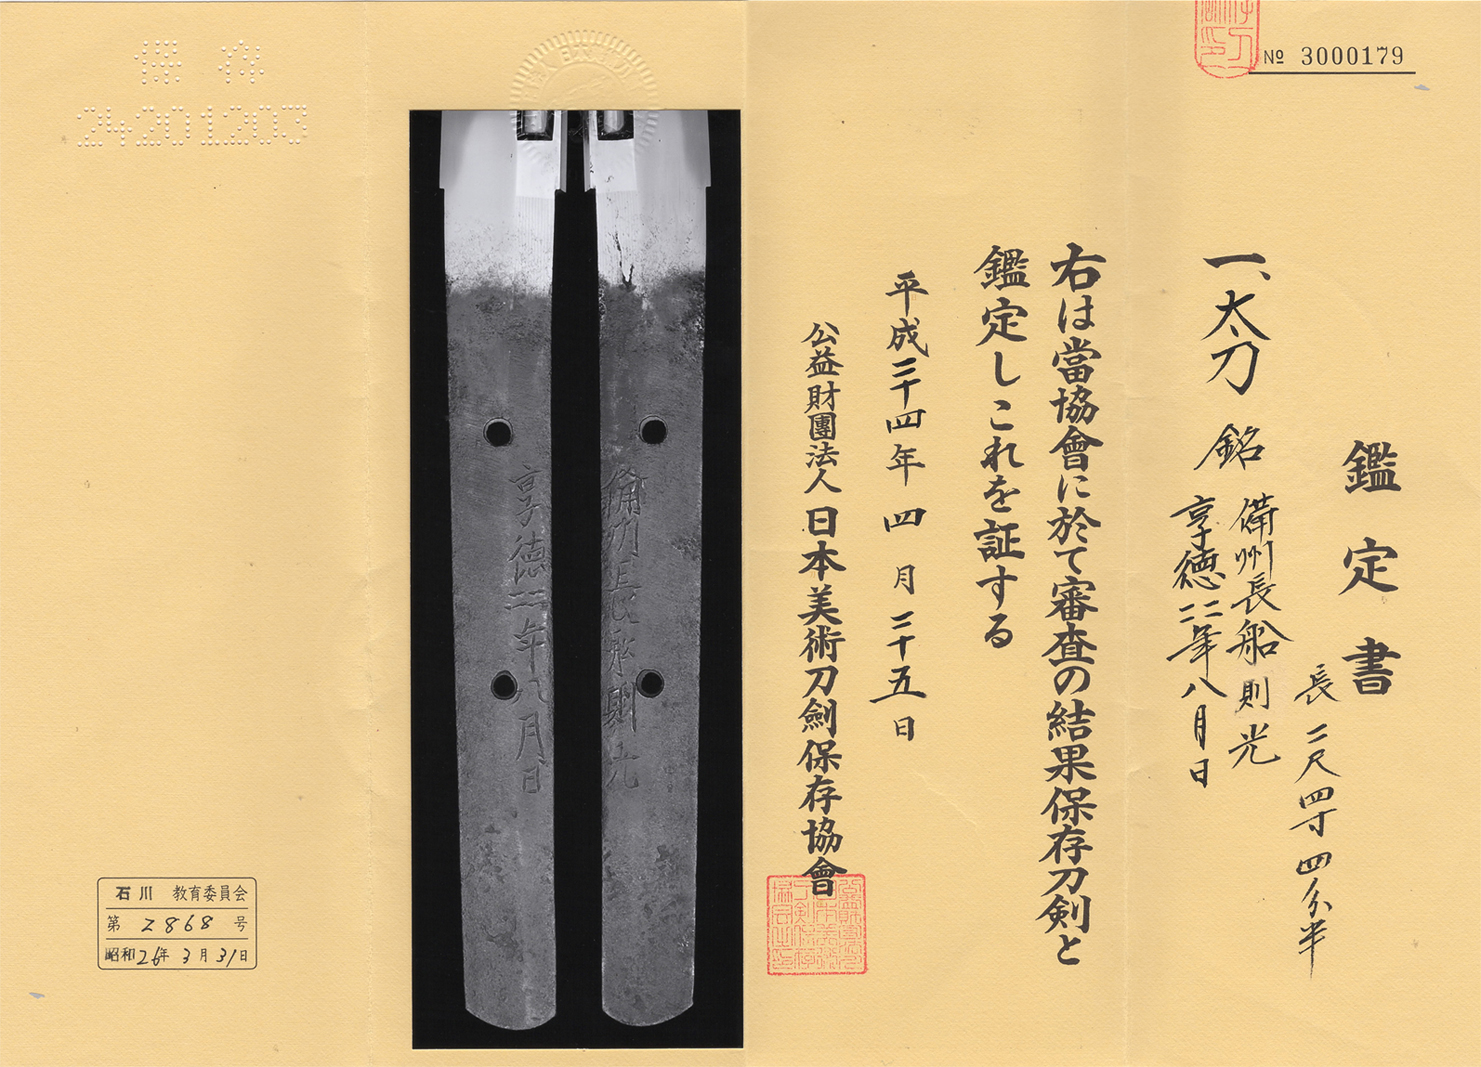 № 3000179
鑑定書
一、太刀 銘 備州長船則光
享徳二二年八月日
長二尺四寸四分半
右は當協會に於て審査の結果保存刀剣と
鑑定しこれを証する
平成二十四年四月二十五日
公益財團法人日本美術刀劍保存協會
備州長船則光
享徳二二年八月日
保存
24201203
石川 教育委員会
第 2868 号
昭和26年3月31日